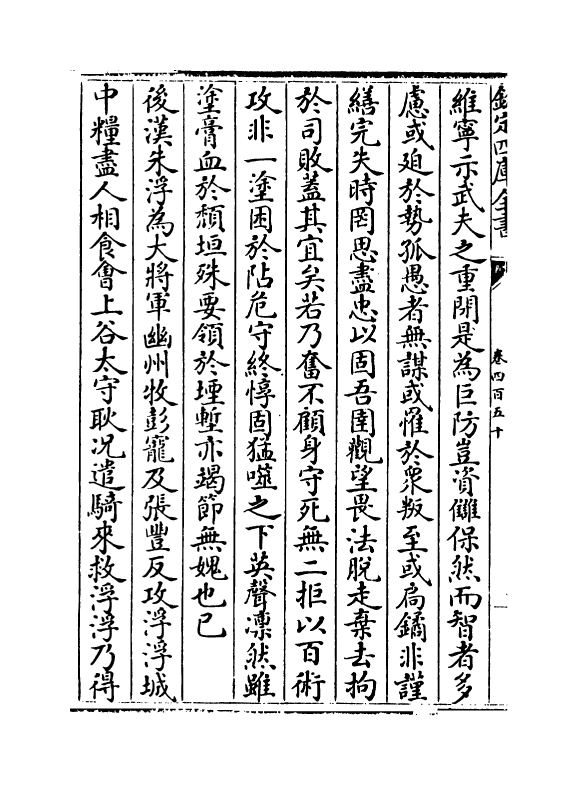 欽定四庫全書
卷四百五十
維寧示武夫之重閉是為巨防豈資讎保然而智者多
慮或廹於勢孤愚者無謀或惟於衆叛至或扃鐍非謹
繕完失時罔思盡忠以固吾圉觀望畏法脫走棄去拘
於司敗蓋其宜矣若乃奮不顧身守死無二拒以百術
攻非一塗困於阽危守終惇固猛噬之下英聲凛然雖
塗膏血於頹垣殊要領於堙塹亦竭節無媿也已
後漢朱浮為大將軍幽州牧彭寵及張豐反攻浮浮城
中糧盡人相食會上谷太守耿况遣騎來救浮浮乃得